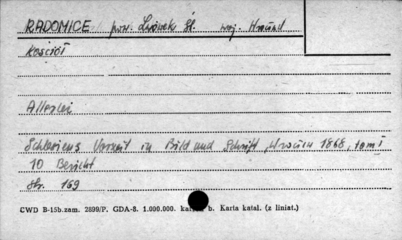 RADOMICE pow. Lwówek Śl. woj. Wrocław
Kościół
Allerlei
Schlesiens Vorzeit in Bild und Schrift, Wrocław 1868, tom I
10 Bericht
Str. 169
CWD B-15b.zam. 2899/P. GDA-8. 1.000.000. b. Karta katal. (z liniat.)